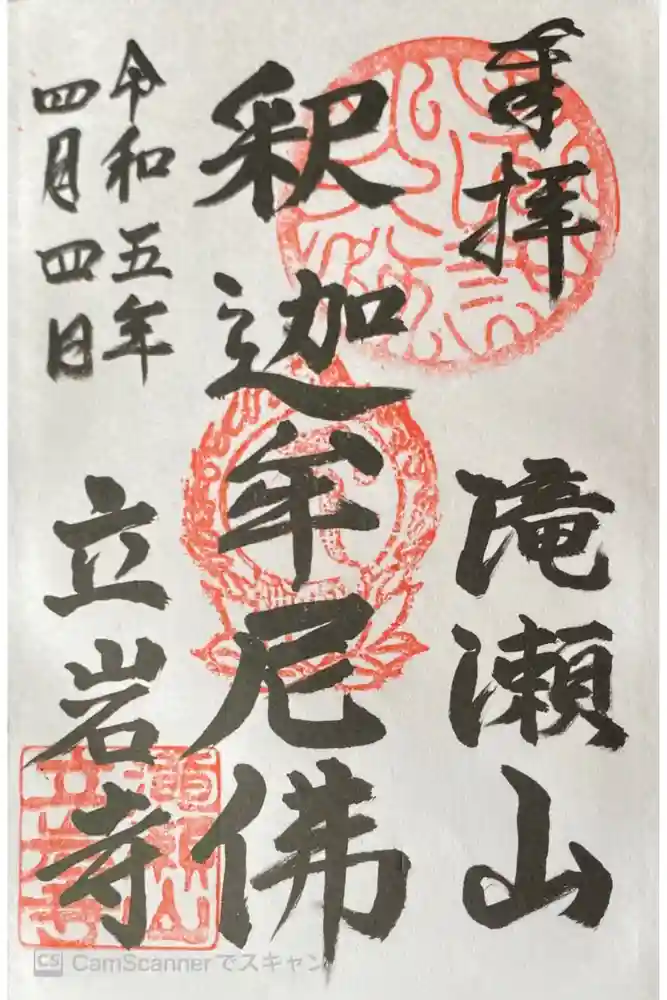 奉拝
滝瀬山
釈迦牟尼佛
令和五年
四月四日
立岩寺
CS CamScannerでスキャン